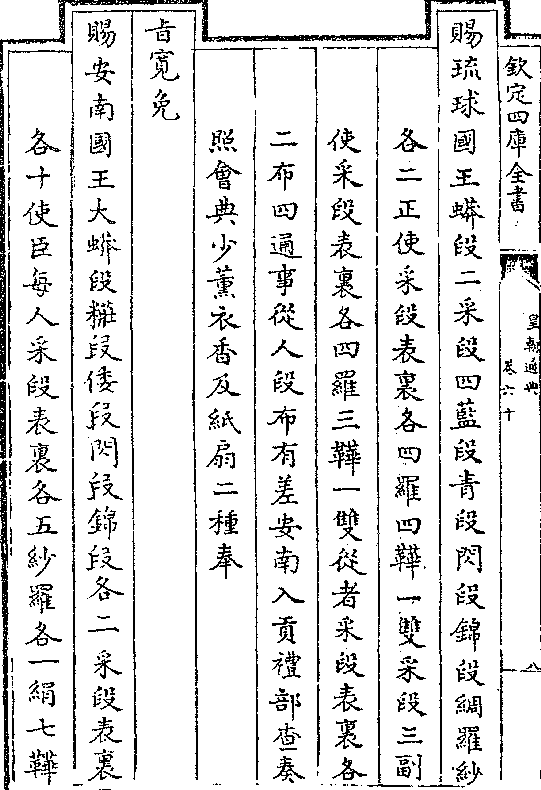 欽定四庫全書
皇朝通典
卷六十
八
賜琉球國王蟒段二采段四藍段青段閃段錦段綢羅紗
各二正使采段表裏各四羅四鞾一雙采段三副
使采段表裏各四羅三鞾一雙從者采段表裏各
二布四通事從人段布有差安南入貢禮部查奏
照會典少薫衣香及紙扇二種奉
旨寛免
賜安南國王大蟒段糚段倭段閃段錦段各二采段表裏
各十使臣每人采段表裏各五紗羅各一絹七鞾